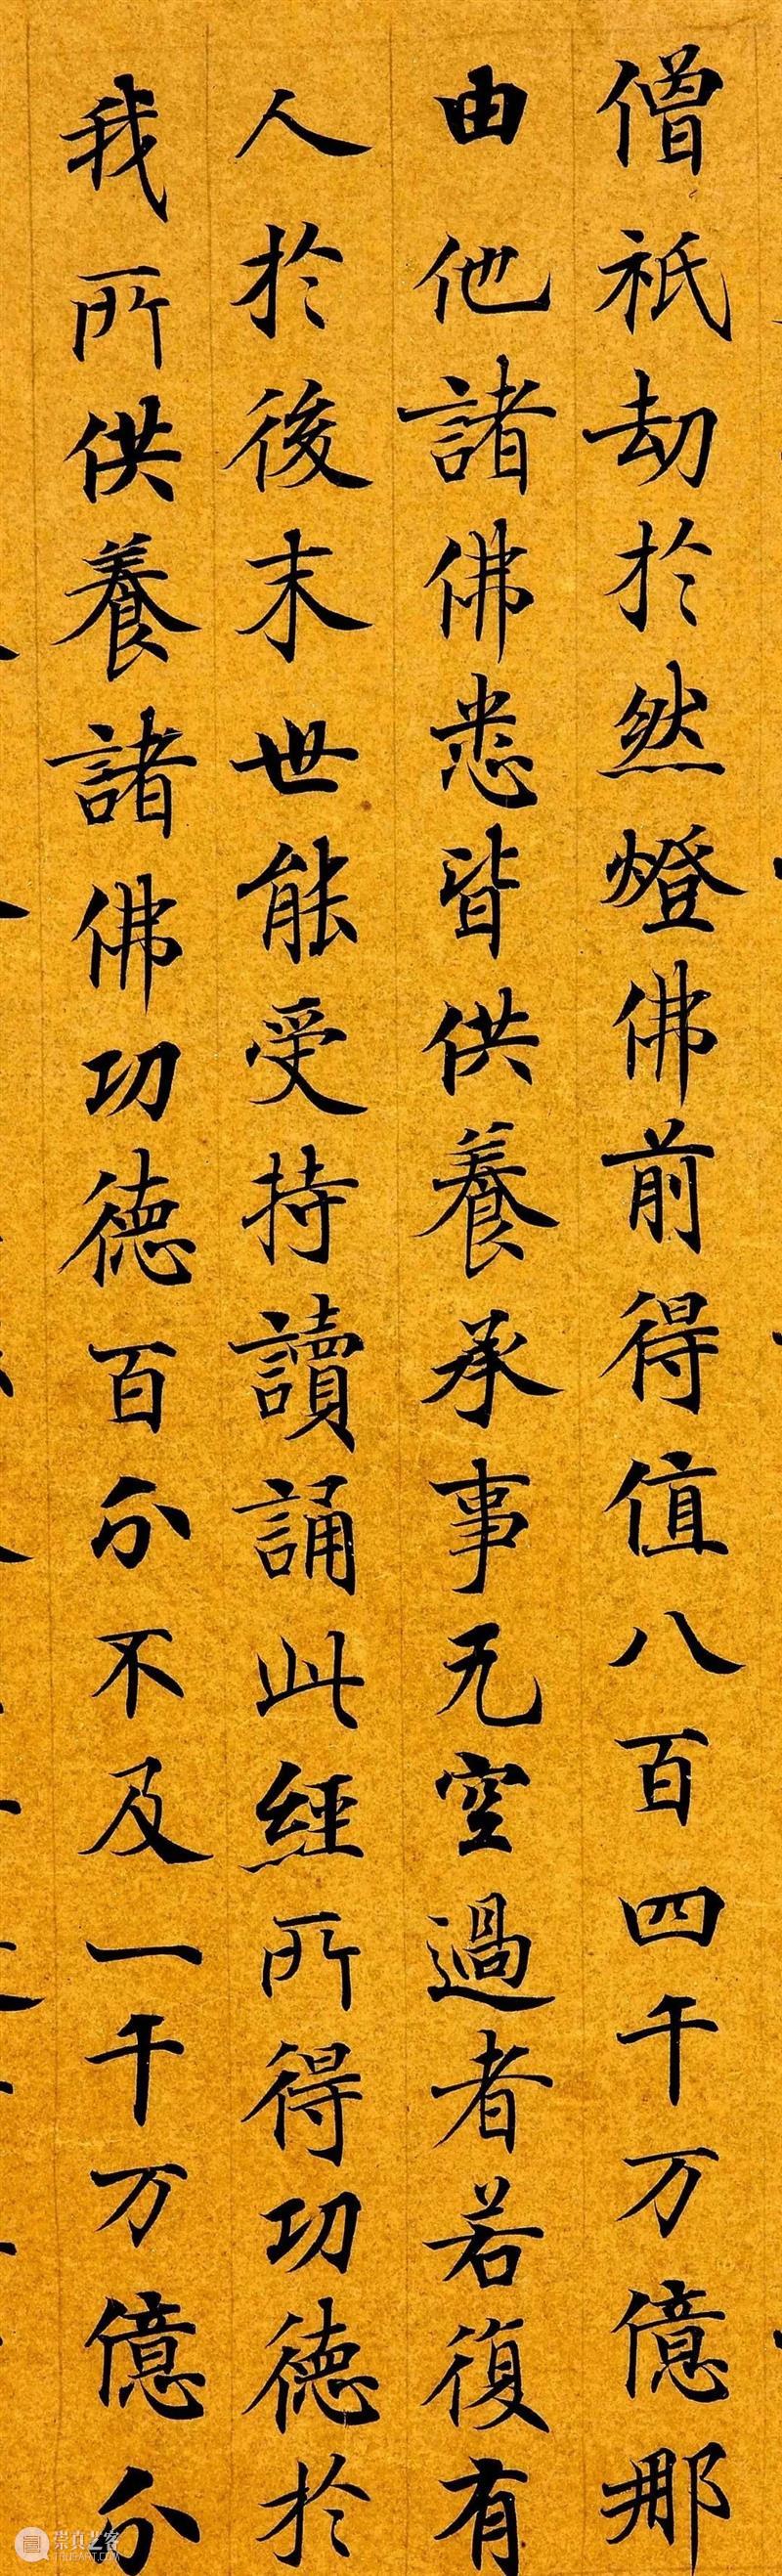 僧祇劫於然燈佛前得值八百四千万億那
由他諸佛悉皆供養承事无空過者若復有
人於後末世能受持讀誦此經所得功德於
我所供養諸佛功德百分不及一千万億分
崇真艺客